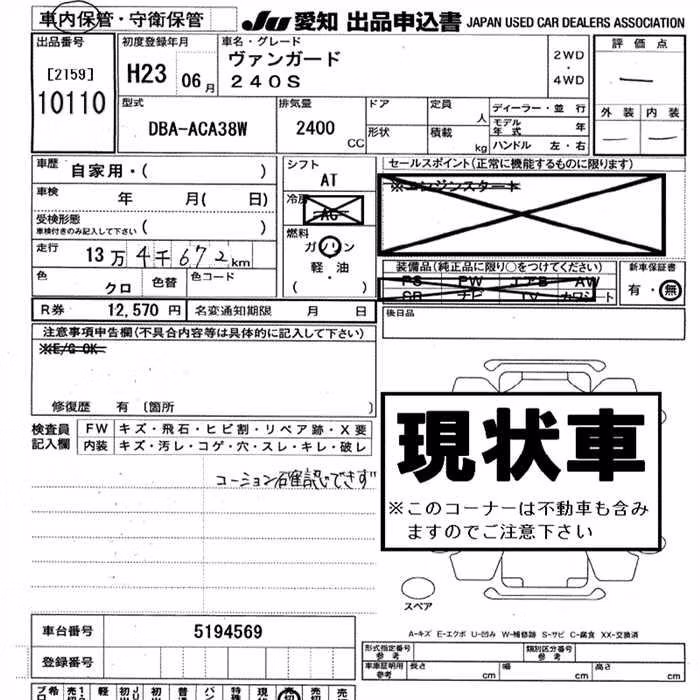 車内保管・守衛保管
JU 愛知 出品申込書 JAPAN USED CAR DEALERS ASSOCIATION
出品番号
[2159]
10110
初度登録年月
H23 06月
車名・グレード
ヴァンガード
240S
2WD
・
4WD
評価点
外装 内装
型式
DBA-ACA38W
排気量
2400
CC
ドア
形状
定員
人
積載
kg
ディーラー・並行
モデル年式 年
ハンドル 左・右
車歴
自家用・( )
車検
年 月( 日)
受検形態
車検付きのみ記入して下さい ( )
走行
13万4千672km
色
クロ
色替
色コード
シフト
AT
冷房
AC
燃料
ガソリン
軽・油
( )
セールスポイント(正常に機能するものに限ります)
※エンジンスタート
装備品(純正品に限り○をつけてください)
PS PW エアB AW
SR ナビ TV カワシート
新車保証書
有・無
R券 12,570 円 名変通知期限 月 日
後日品
注意事項申告欄(不具合内容等は具体的に記入して下さい)
※E/G OK
修復歴 有 〔箇所 〕
検査員記入欄
FW キズ・飛石・ヒビ割・リペア跡・X要
内装 キズ・汚レ・コゲ・穴・スレ・キレ・破レ
コーション確認できず
現状車
※このコーナーは不動車も含み
ますのでご注意下さい
スペア
A-キズ E-エクボ U-凹み W-補修跡 S-サビ C-腐食 XX-交換済
車台番号 5194569
登録番号
形式指定番号 参考
類別区分番号 参考
車庫証明用 参考 長さ cm 幅 cm 高さ cm